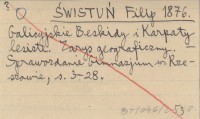 ? O ŚWISTUŃ Filip 1876.
Galicyjskie Beskidy i Karpaty
lesiste. Zarys geograficzny. –
Sprawozdanie Gimnazjum w Rze-
szowie, s. 3-28.